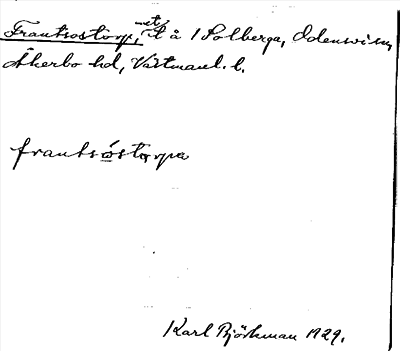 Frantsostorp, -et, t å 1 Solberga, Odensvi sn,
Åkerbo hd, Västmanl. l.
frantsóstorpa
Karl Björkman 1929.